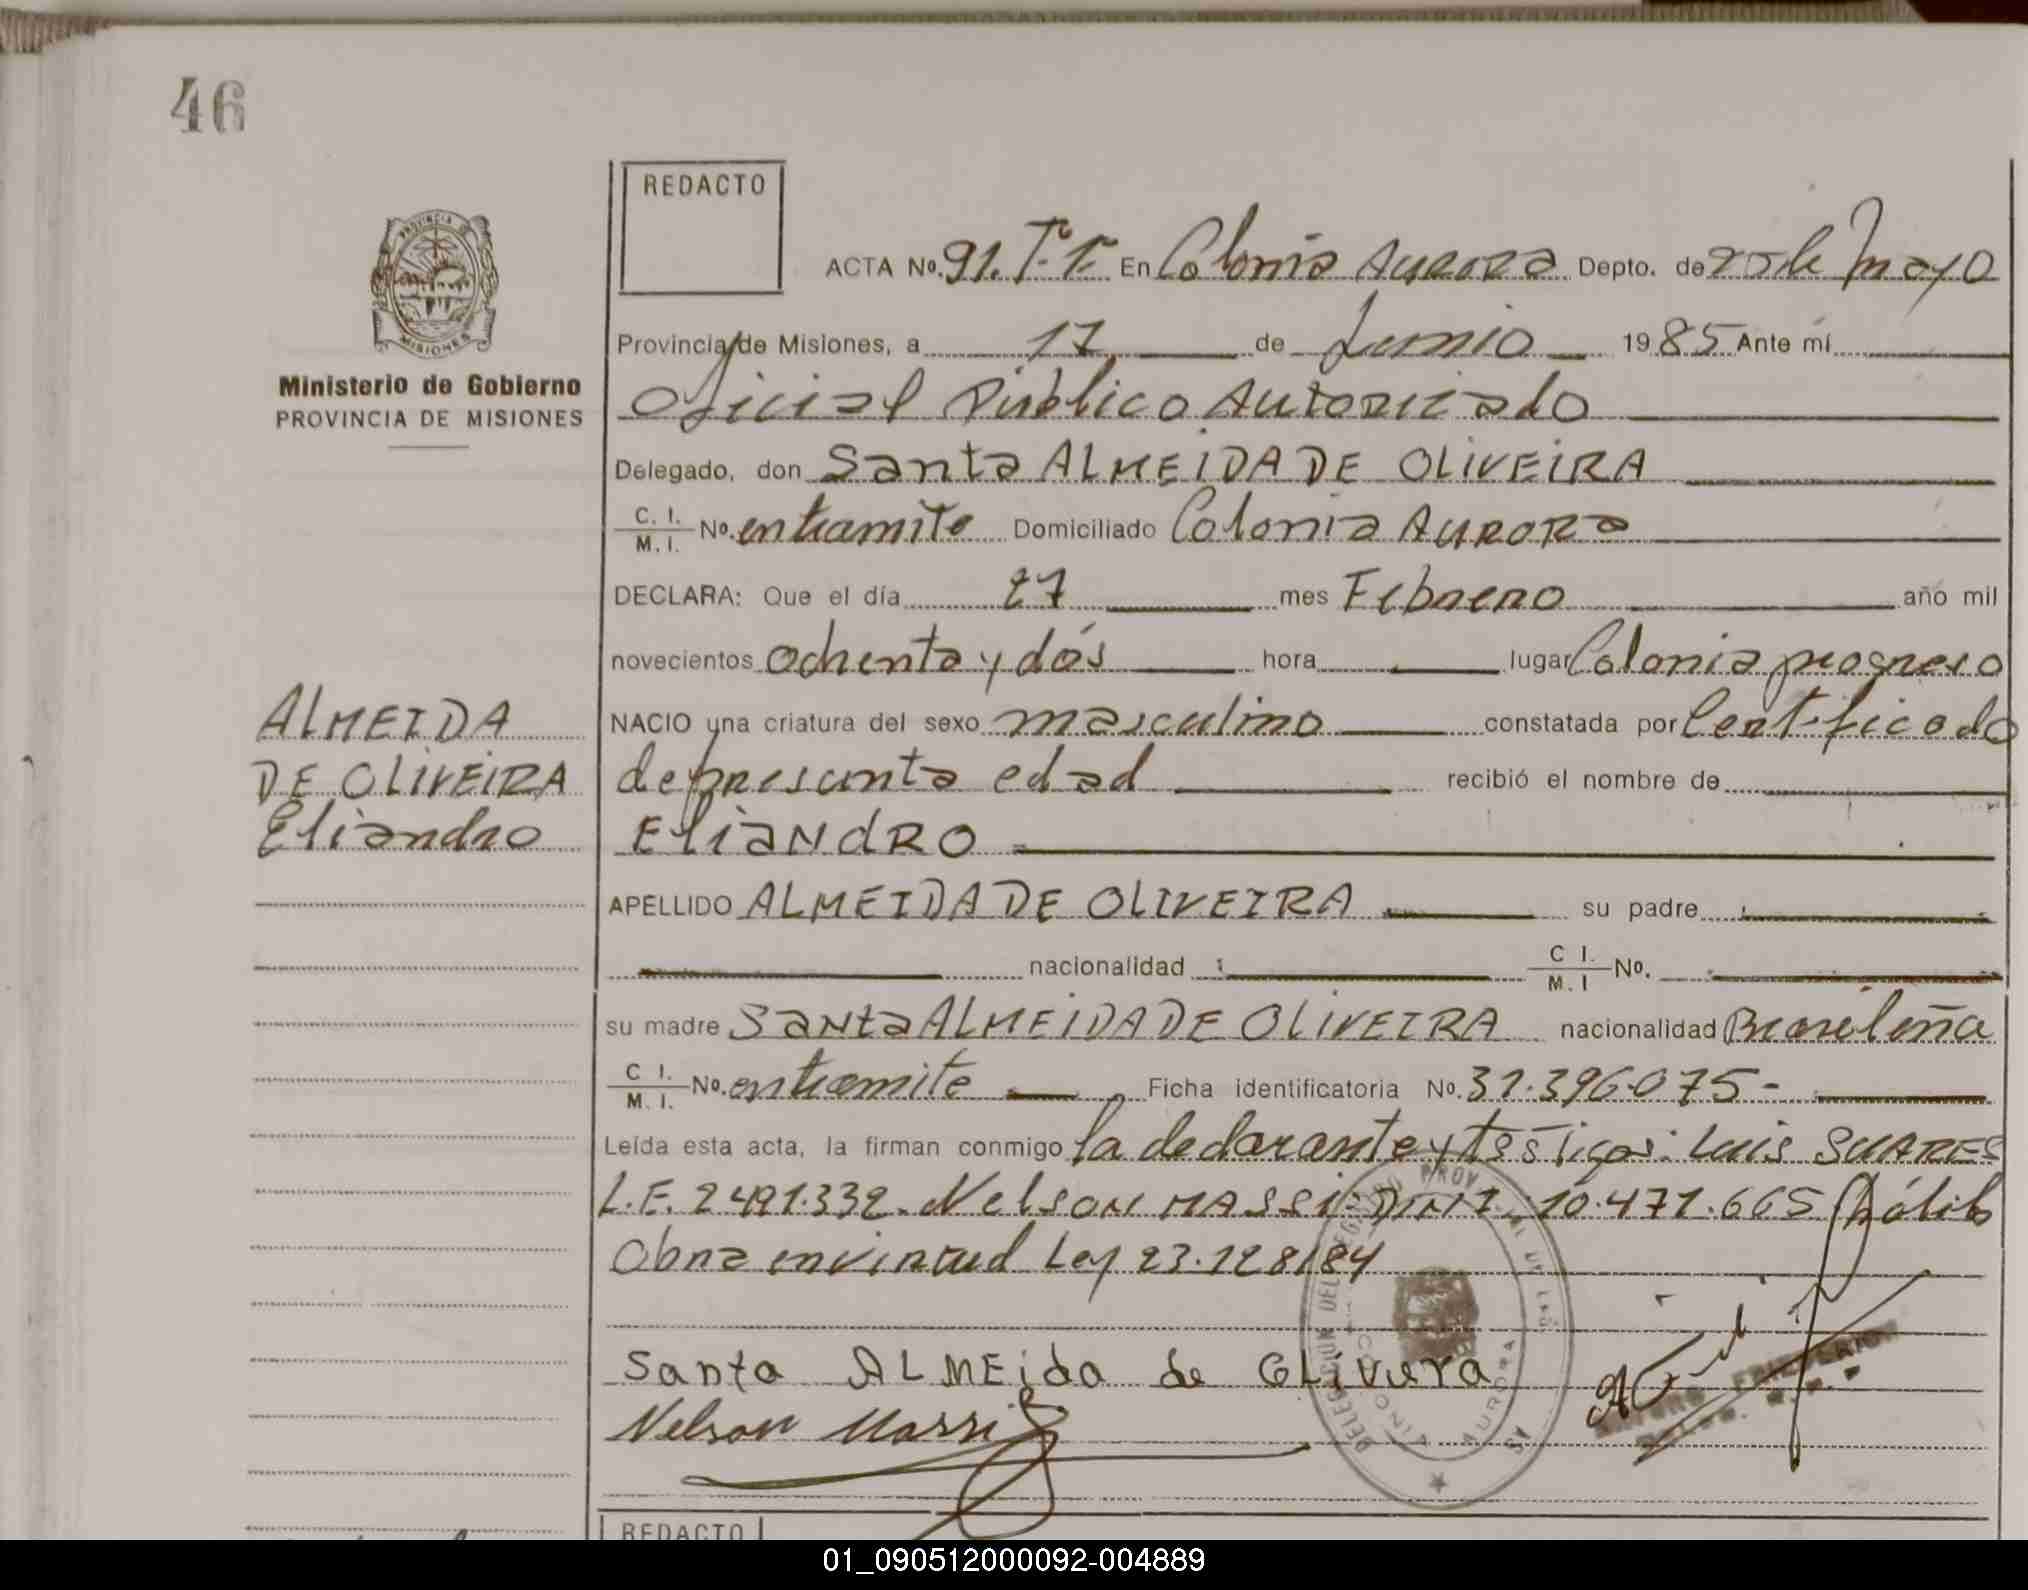 46
REDACTO
ACTA Nº. 91. Tº. 1º. En Colonia Aurora Depto. de 25 de Mayo
Provincia de Misiones, a 17 de Junio 1985 Ante mí
Oficial Público Autorizado
Ministerio de Gobierno
PROVINCIA DE MISIONES
Delegado, don Santa ALMEIDA DE OLIVEIRA
C. I. M. I. Nº. en tramite Domiciliado Colonia AURORA
DECLARA: Que el día 27 mes Febrero año mil
novecientos ochenta y dós hora lugar Colonia progreso
NACIO una criatura del sexo masculino constatada por Certificado
de presunta edad recibió el nombre de
ELIANDRO
ALMEIDA
DE OLIVEIRA
Eliandro
APELLIDO ALMEIDA DE OLIVEIRA su padre
nacionalidad C I. M. I Nº.
su madre SANTA ALMEIDA DE OLIVEIRA nacionalidad Brasileña
C I. M. I. Nº. en tramite Ficha identificatoria Nº. 31.396.075-
Leída esta acta, la firman conmigo la declarante y testigos: Luis SUARES
L.E. 2491.332. Nelson MASSI: DNI. 10.471.665
Obra en virtud Ley 23.128/84
Santa ALMEida de OLivera
Nelson Massi
AURORA
REDACTO
01_090512000092-004889